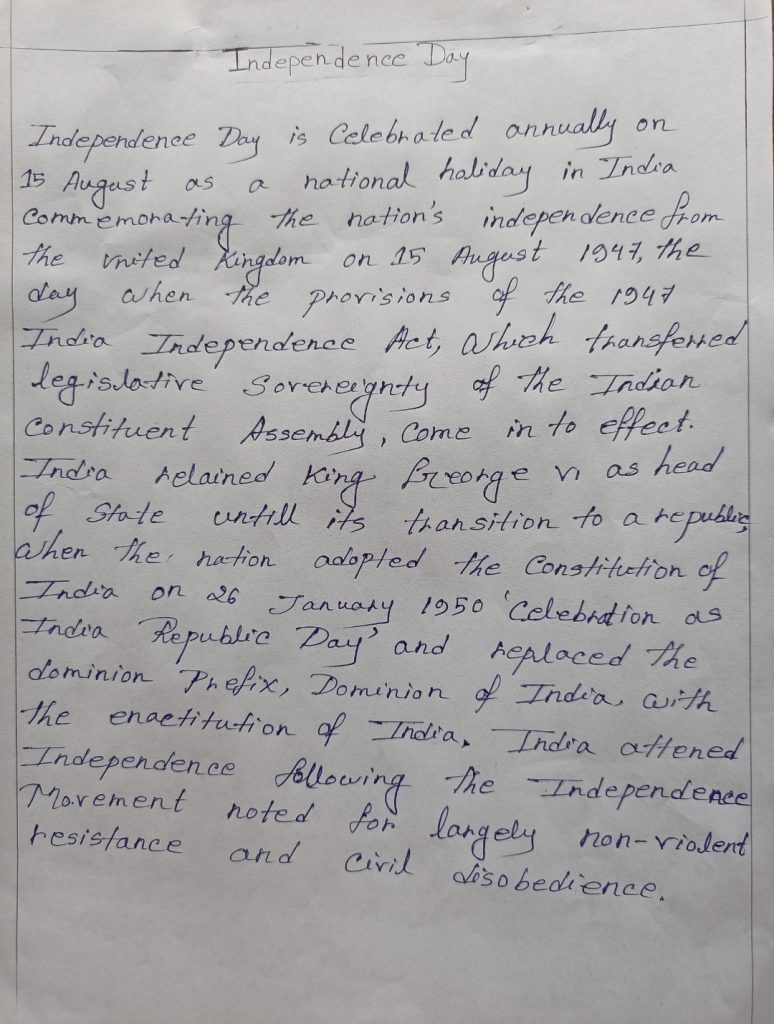 Independence Day
Independence Day is Celebrated annually on
15 August as a national holiday in India
Commemorating the nation's independence from
the united Kingdom on 15 August 1947, the
day when the provisions of the 1947
India Independence Act, Which transferred
legislative Sovereignty of the Indian
Constituent Assembly, Come in to effect.
India relained King George VI as head
of State untill its transition to a republic,
When the nation adopted the Constitution of
India on 26 January 1950 'Celebration as
India Republic Day' and replaced the
dominion Prefix, Dominion of India, with
the enactitution of India. India attened
Independence following the Independence
Movement noted for largely non-violent
resistance and Civil disobedience.